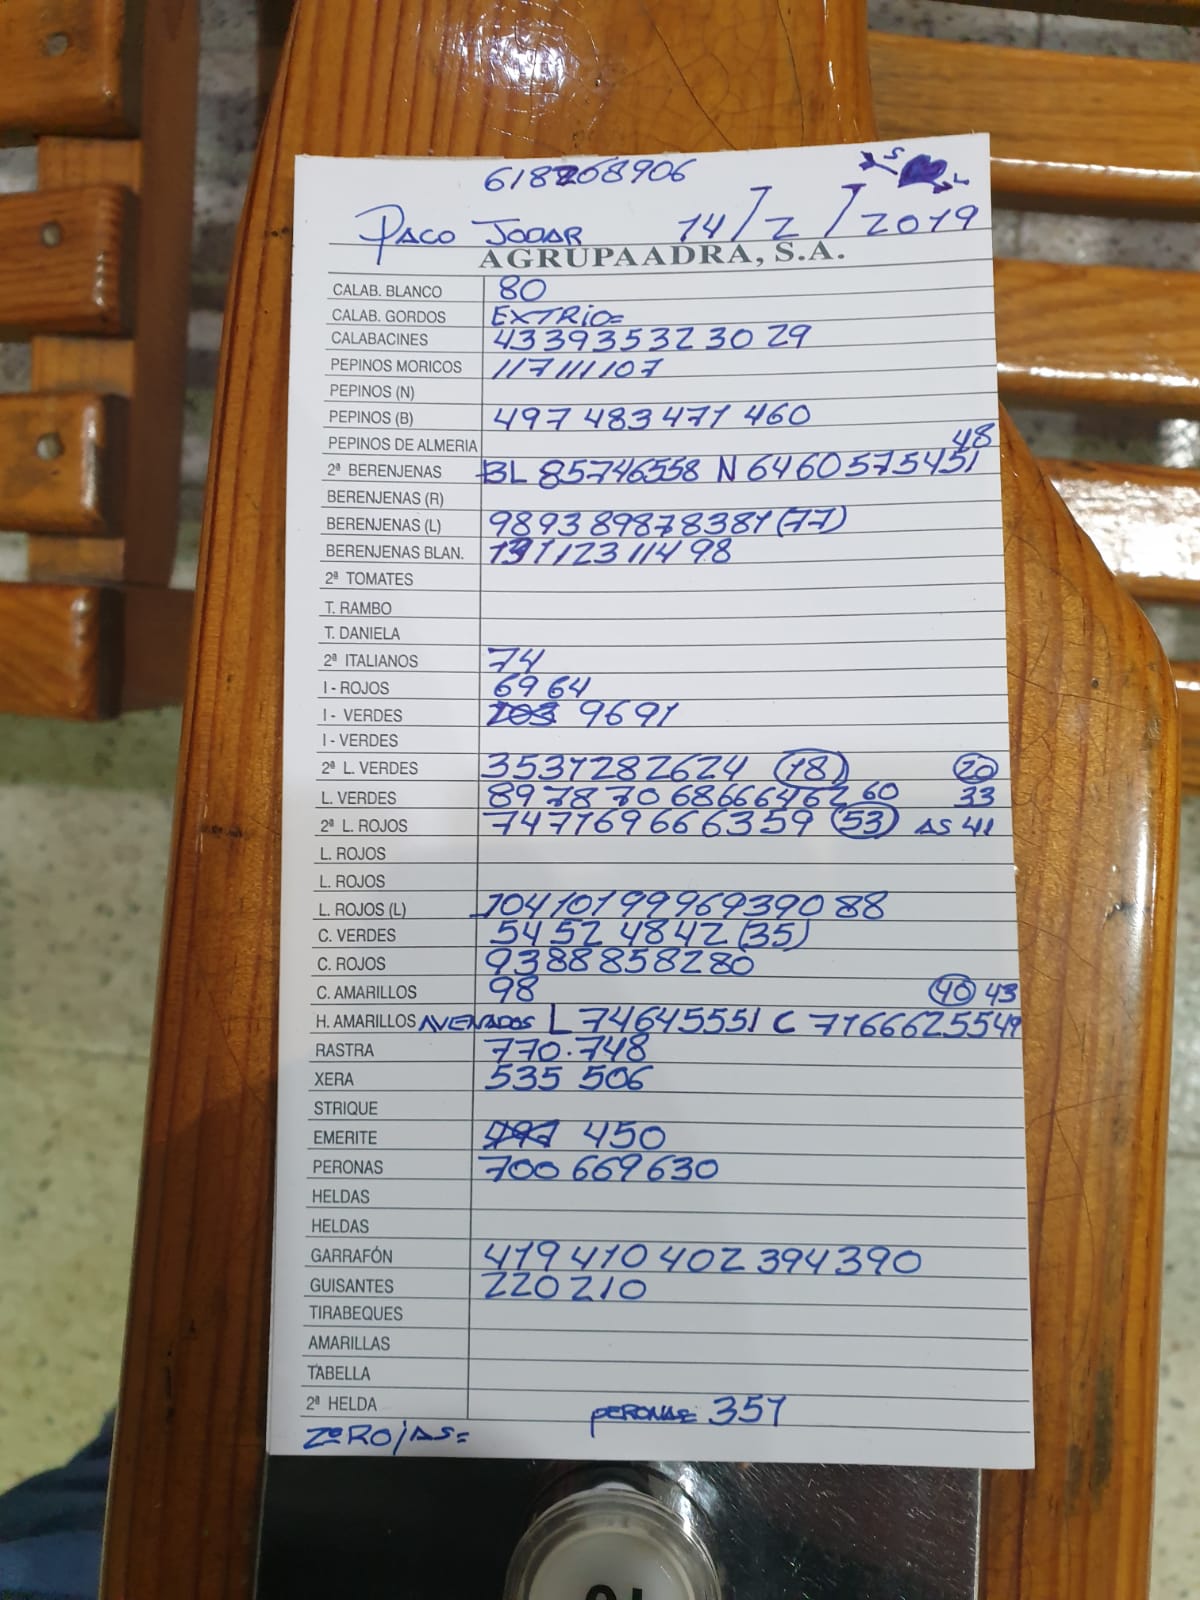 618268906
S L
PACO JODAR 14/2/2019
AGRUPAADRA, S.A.
CALAB. BLANCO 80
CALAB. GORDOS EXTRIO=
CALABACINES 43 39 35 32 30 29
PEPINOS MORICOS 117 111 107
PEPINOS (N)
PEPINOS (B) 497 483 471 460
PEPINOS DE ALMERIA 48
2ª BERENJENAS BL 85 74 65 58 N 64 60 57 54 51
BERENJENAS (R)
BERENJENAS (L) 98 93 89 87 83 81 (77)
BERENJENAS BLAN. 131 123 114 98
2ª TOMATES
T. RAMBO
T. DANIELA
2ª ITALIANOS 74
I - ROJOS 69 64
I - VERDES 103 96 91
I - VERDES
2ª L. VERDES 35 31 28 26 24 (18) 20
L. VERDES 89 78 70 68 66 64 62 60 33
2ª L. ROJOS 74 71 69 66 63 59 (53) AS 41
L. ROJOS
L. ROJOS
L. ROJOS (L) 104 101 99 96 93 90 88
C. VERDES 54 52 48 42 (35)
C. ROJOS 93 88 85 82 80
C. AMARILLOS 98 40 43
H. AMARILLOS AVENADOS L 74 64 55 51 C 71 66 62 55 49
RASTRA 770.748
XERA 535 506
STRIQUE
EMERITE 497 450
PERONAS 700 669 630
HELDAS
HELDAS
GARRAFÓN 419 410 402 394 390
GUISANTES 220 210
TIRABEQUES
AMARILLAS
TABELLA
2ª HELDA PERONAS 351
2ºRO/AS=